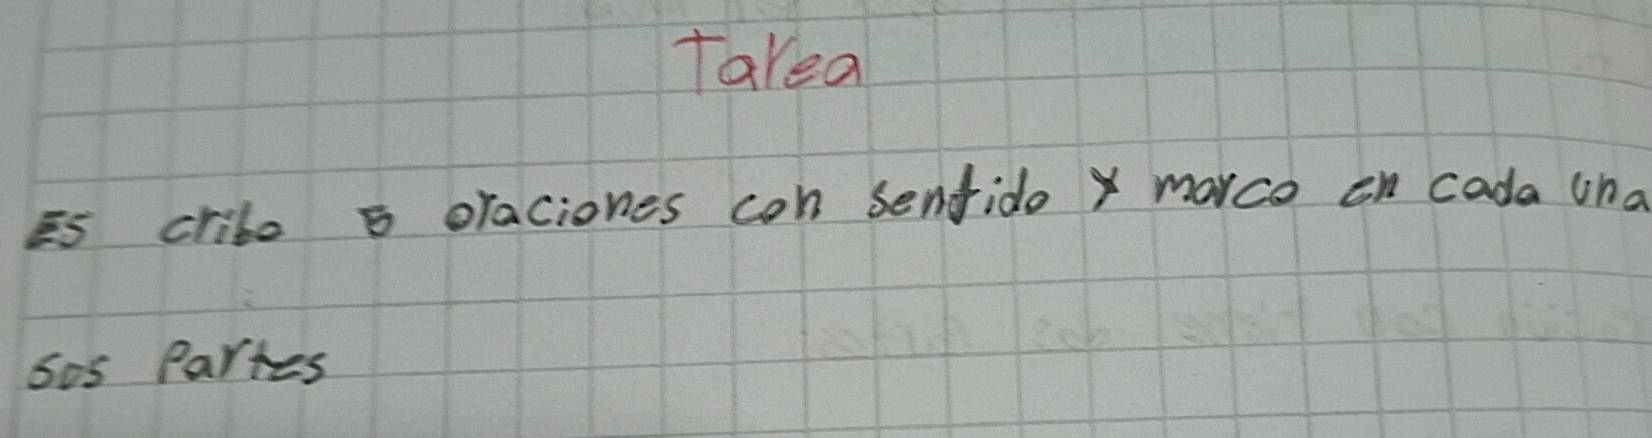 Tarea
Es cribo 5 oraciones con sentido y marco en cada una
sos Partes